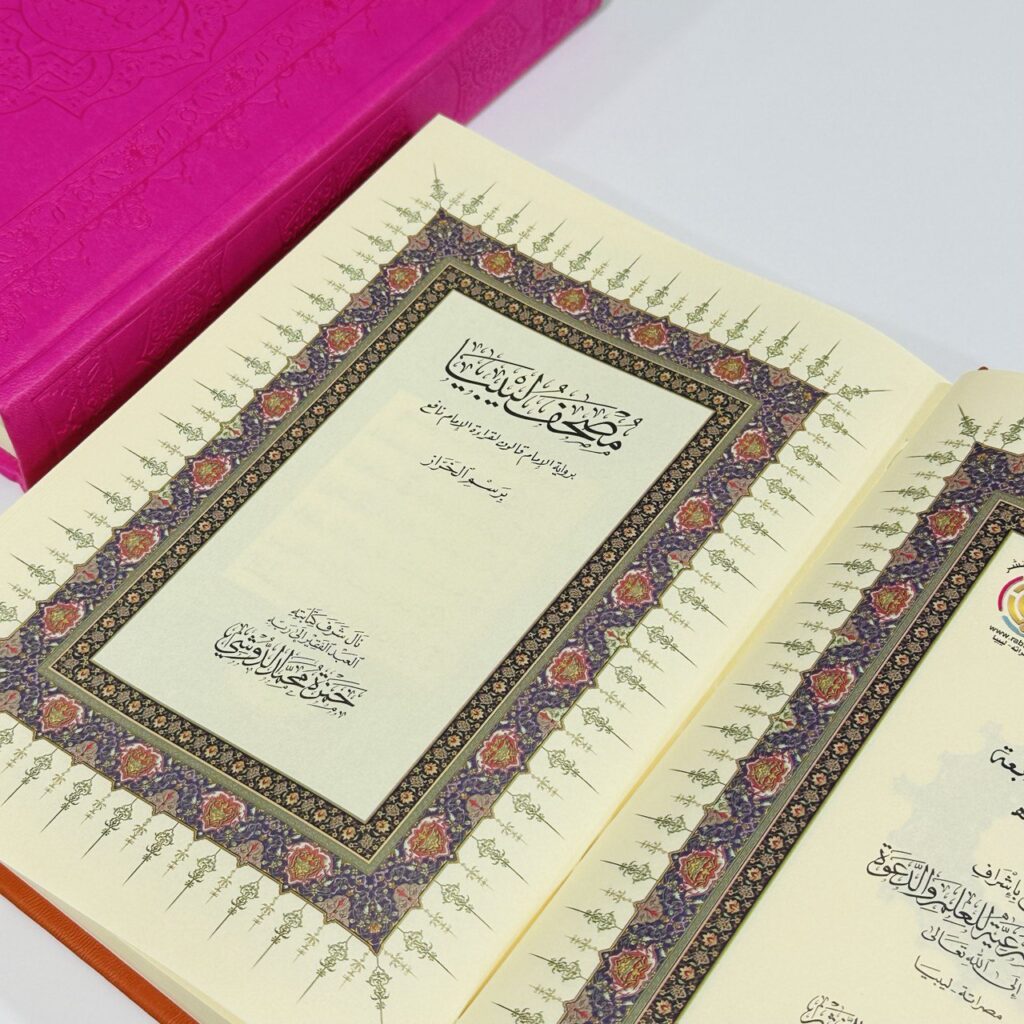 مُصْحَفُ لِيبْيَا
برواية الإمام قالون لقراءة الإمام نافع
بِرَسْمِ الخَرَّاز
نَالَ شَرَفَ كِتَابَتِهِ
العَبْدُ الفَقِيرُ إِلَى رَبِّهِ
حَمْزَة مُحَمَّد الدَّوشِي
بإشراف
للعلم والدَّعوَة
إلى الله تعالى
مصراتة - ليبيا